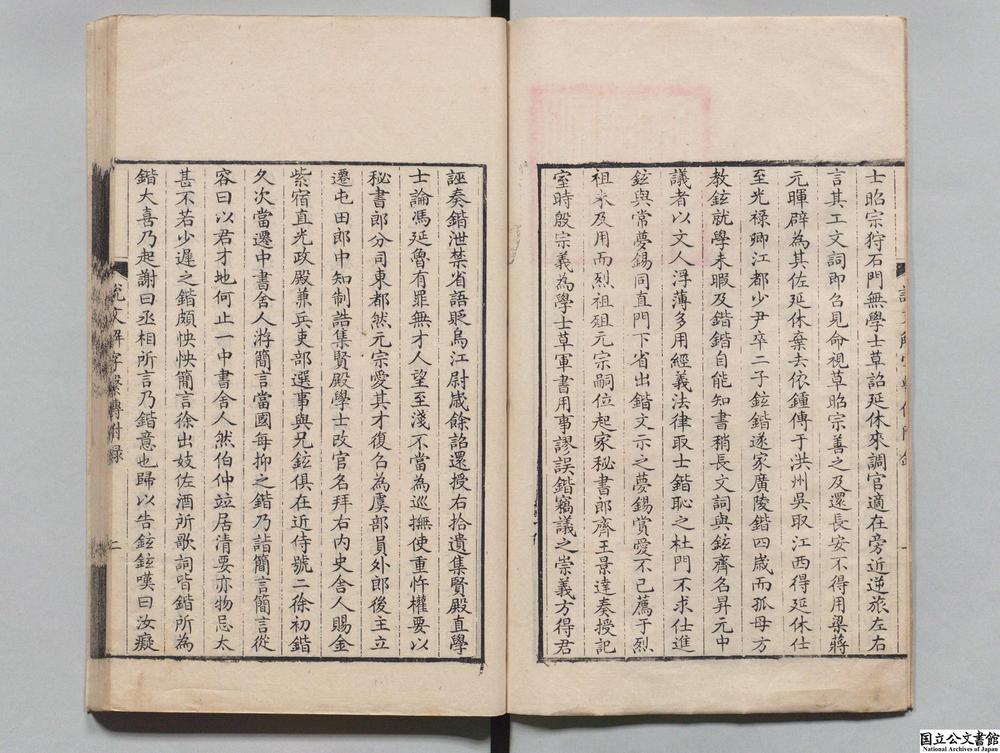 士昭宗狩石門無學士草詔延休來調官適在旁近逆旅左右
言其工文詞即召見命視草昭宗善之及還長安不得用梁蔣
元暉辟為其佐延休棄去依鍾傳于洪州吳取江西得延休仕
至光祿卿江都少尹卒二子鉉鍇遂家廣陵鍇四歲而孤母方
教鉉就學未暇及鍇鍇自能知書稍長文詞與鉉齊名昇元中
議者以文人浮薄多用經義法律取士鍇恥之杜門不求仕進
鉉與常夢錫同直門下省出鍇文示之夢錫賞愛不已薦于烈
祖未及用而烈祖殂元宗嗣位起家秘書郎齊王景達奏授記
室時殷宗義為學士草軍書用事謬誤鍇竊議之崇義方得君
誣奏鍇泄禁省語貶烏江尉歲餘詔還授右拾遺集賢殿直學
士論馮延魯有罪無才人望至淺不當為巡撫使重忤權要以
秘書郎分司東都然元宗愛其才復召為虞部員外郎後主立
遷屯田郎中知制誥集賢殿學士改官名拜右內史舍人賜金
紫宿直光政殿兼兵吏部選事與兄鉉俱在近侍號二徐初鍇
久次當遷中書舍人游簡言當國每抑之鍇乃詣簡言簡言從
容曰以君才地何止一中書舍人然伯仲竝居清要亦物忌太
甚不若少遲之鍇頗怏怏簡言徐出妓佐酒所歌詞皆鍇所為
鍇大喜乃起謝曰丞相所言乃鍇意也歸以告鉉鉉嘆曰汝癡
說文解字繫傳附錄
二
国立公文書館
National Archives of Japan